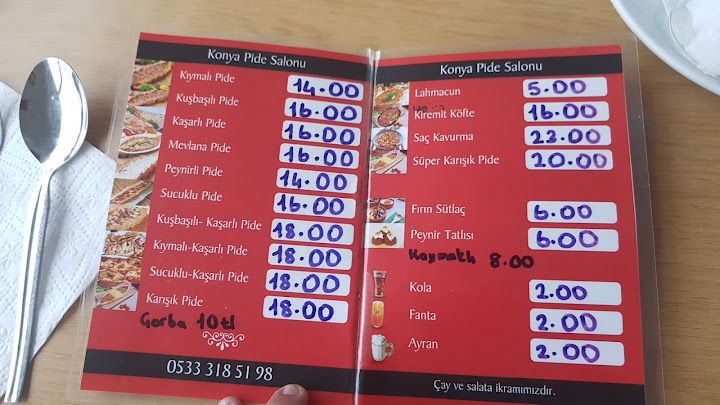 Konya Pide Salonu
Kıymalı Pide 14.00
Kuşbaşılı Pide 16.00
Kaşarlı Pide 16.00
Mevlana Pide 16.00
Peynirli Pide 14.00
Sucuklu Pide 16.00
Kuşbaşılı- Kaşarlı Pide 18.00
Kıymalı-Kaşarlı Pide 18.00
Sucuklu-Kaşarlı Pide 18.00
Karışık Pide 18.00
Çorba 10tl
0533 318 51 98
Konya Pide Salonu
Lahmacun 5.00
Kiremit Köfte 16.00
Saç Kavurma 23.00
Süper Karışık Pide 20.00
Fırın Sütlaç 6.00
Peynir Tatlısı 6.00
Kaymaklı 8.00
Kola 2.00
Fanta 2.00
Ayran 2.00
Çay ve salata ikramımızdır.